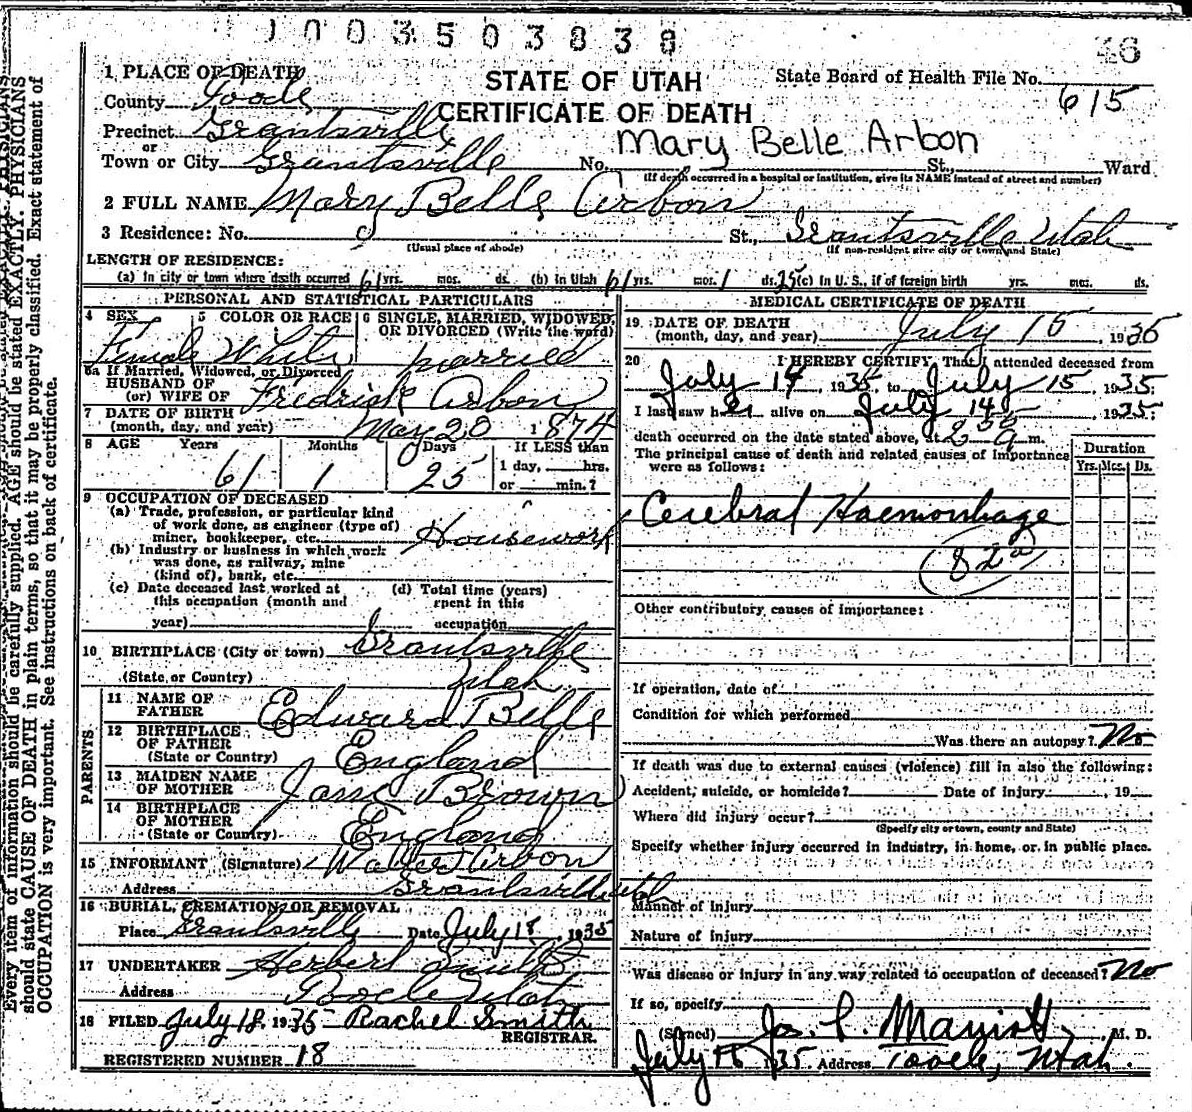 1003503838
46
1 PLACE OF DEATH
STATE OF UTAH
State Board of Health File No. 615
County Tooele
CERTIFICATE OF DEATH
Precinct Grantsville
or
Mary Belle Arbon
Town or City Grantsville No. St., Ward
(If death occurred in a hospital or institution, give its NAME instead of street and number)
2 FULL NAME Mary Belle Arbon
3 Residence: No. St., Grantsville Utah
(Usual place of abode) (If non-resident give city or town and State)
LENGTH OF RESIDENCE:
(a) In city or town where death occurred 61 yrs. mos. ds. (b) in Utah 61 yrs. mos. 1 ds. 25 (c) In U. S., if of foreign birth yrs. mos. ds.
PERSONAL AND STATISTICAL PARTICULARS
4 SEX 5 COLOR OR RACE 6 SINGLE, MARRIED, WIDOWED, OR DIVORCED (Write the word)
Female White married
6a If Married, Widowed, or Divorced
HUSBAND OF
(or) WIFE OF Fredrick Arbon
7 DATE OF BIRTH
(month, day, and year) May 20 1874
8 AGE Years Months Days If LESS than
61 1 25 1 day, hrs.
or min.?
9 OCCUPATION OF DECEASED
(a) Trade, profession, or particular kind
of work done, as engineer (type of)
miner, bookkeeper, etc. Housework
(b) Industry or business in which work
was done, as railway, mine
(kind of), bank, etc.
(c) Date deceased last worked at (d) Total time (years)
this occupation (month and spent in this
year) occupation
10 BIRTHPLACE (City or town) Grantsville
(State or Country) Utah
PARENTS
11 NAME OF
FATHER Edward Belle
12 BIRTHPLACE
OF FATHER England
(State or Country)
13 MAIDEN NAME
OF MOTHER Jane Brown
14 BIRTHPLACE
OF MOTHER England
(State or Country)
15 INFORMANT (Signature) Walter Arbon
Address Grantsville Utah
16 BURIAL, CREMATION, OR REMOVAL
Place Grantsville Date July 18, 1935
17 UNDERTAKER Herbert
Address Tooele Utah
18 FILED July 18, 1935 Rachel Smith
REGISTRAR.
REGISTERED NUMBER 18
MEDICAL CERTIFICATE OF DEATH
19 DATE OF DEATH
(month, day, and year) July 15 1935
20 I HEREBY CERTIFY, That I attended deceased from
July 14, 1935 to July 15, 1935.
I last saw her alive on July 14 1935.
death occurred on the date stated above, at 2 30 a m.
The principal cause of death and related causes of importance
were as follows:
Duration
Yrs. Mos. Ds.
Cerebral Haemorrhage
82a
Other contributory causes of importance:
If operation, date of
Condition for which performed
Was there an autopsy? No
If death was due to external causes (violence) fill in also the following:
Accident, suicide, or homicide? Date of injury , 19
Where did injury occur?
(Specify city or town, county and State)
Specify whether injury occurred in industry, in home, or in public place.
Manner of injury
Nature of injury
Was disease or injury in any way related to occupation of deceased? No
If so, specify
(Signed) Jos. P. M. D.
July 1935 Address Tooele, Utah
Every item of information should be carefully supplied. AGE should be stated EXACTLY. PHYSICIANS
should state CAUSE OF DEATH in plain terms, so that it may be properly classified. Exact statement of
OCCUPATION is very important. See instructions on back of certificate.